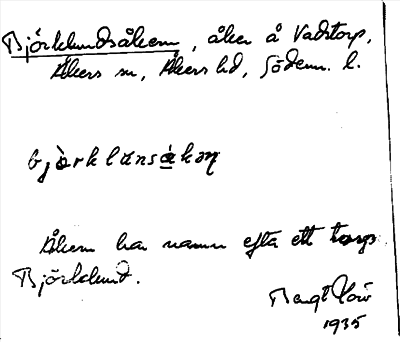 Björklundsåkern, åker å Vadstorp,
Åkers sn, Åkers hd, Söderm. l.
bjòrklunsåkəɳ
Åkern har namn efter ett torp
Björklund.
Bengt
1935